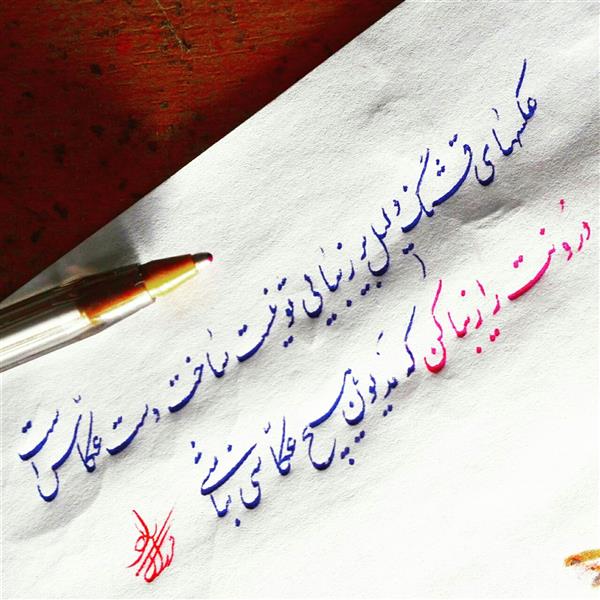 عکسهای قشنگ دلیل بر زیبایی تو نیست ساخت دست عکاس است
درونت را زیبا کن که مدیون هیچ عکاسی نباشی